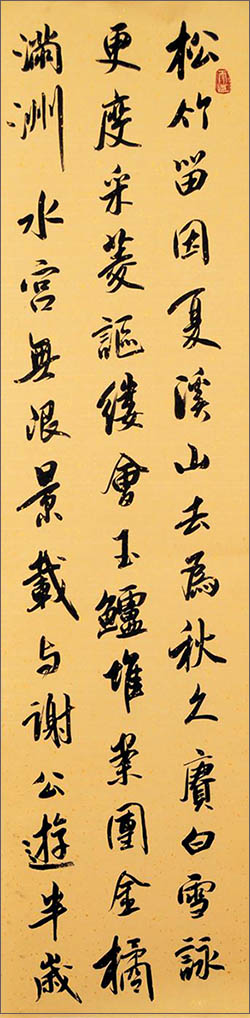 松竹留因夏溪山去為秋久賡白雪詠
更度采菱謳縷會玉鱸堆案團金橘
滿洲 水宮無限景載与謝公遊半歲